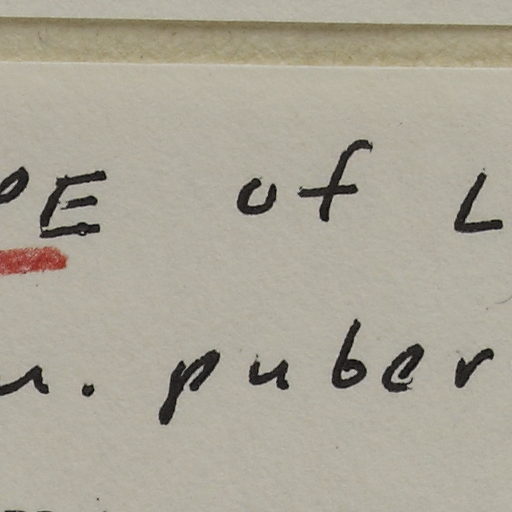 PE of L
u. puber